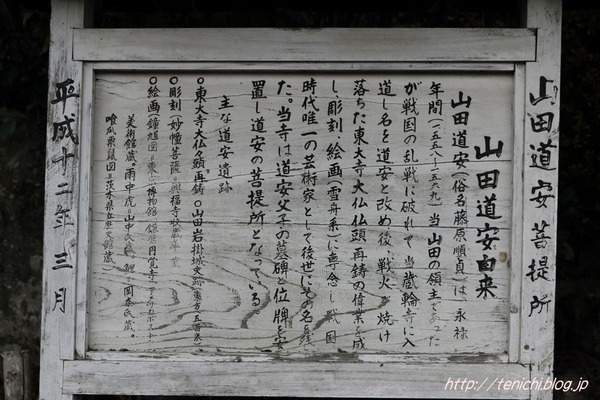 山田道安菩提所
山田道安由来
山田道安(俗名藤原順貞)は 永禄
年間(一五五八~一五六九)当山田の領主であった
が戦国の乱戦に破れて 当蔵輪寺に入
道し名を道安と改め後 戦火で焼け
落ちた東大寺大仏仏頭再鋳の偉業を成
し、彫刻、絵画(雪舟系)に専念し戦国
時代唯一の芸術家として後世にその名を残し
た。当寺は道安父子の墓碑と位牌を安
置し道安の菩提所となっている。
主な道安遺跡
○東大寺大仏頭再鋳 ○山田岩掛城史跡
○彫刻(妙幢菩薩)興福寺収蔵庫
○絵画(鐘馗図)東京博物館
美術館蔵。雨中虎 山中氏蔵、鯉 岡本氏蔵。
瓜栗鼠図 茨木県立歴史館蔵
平成十二年三月
http://tenichi.blog.jp